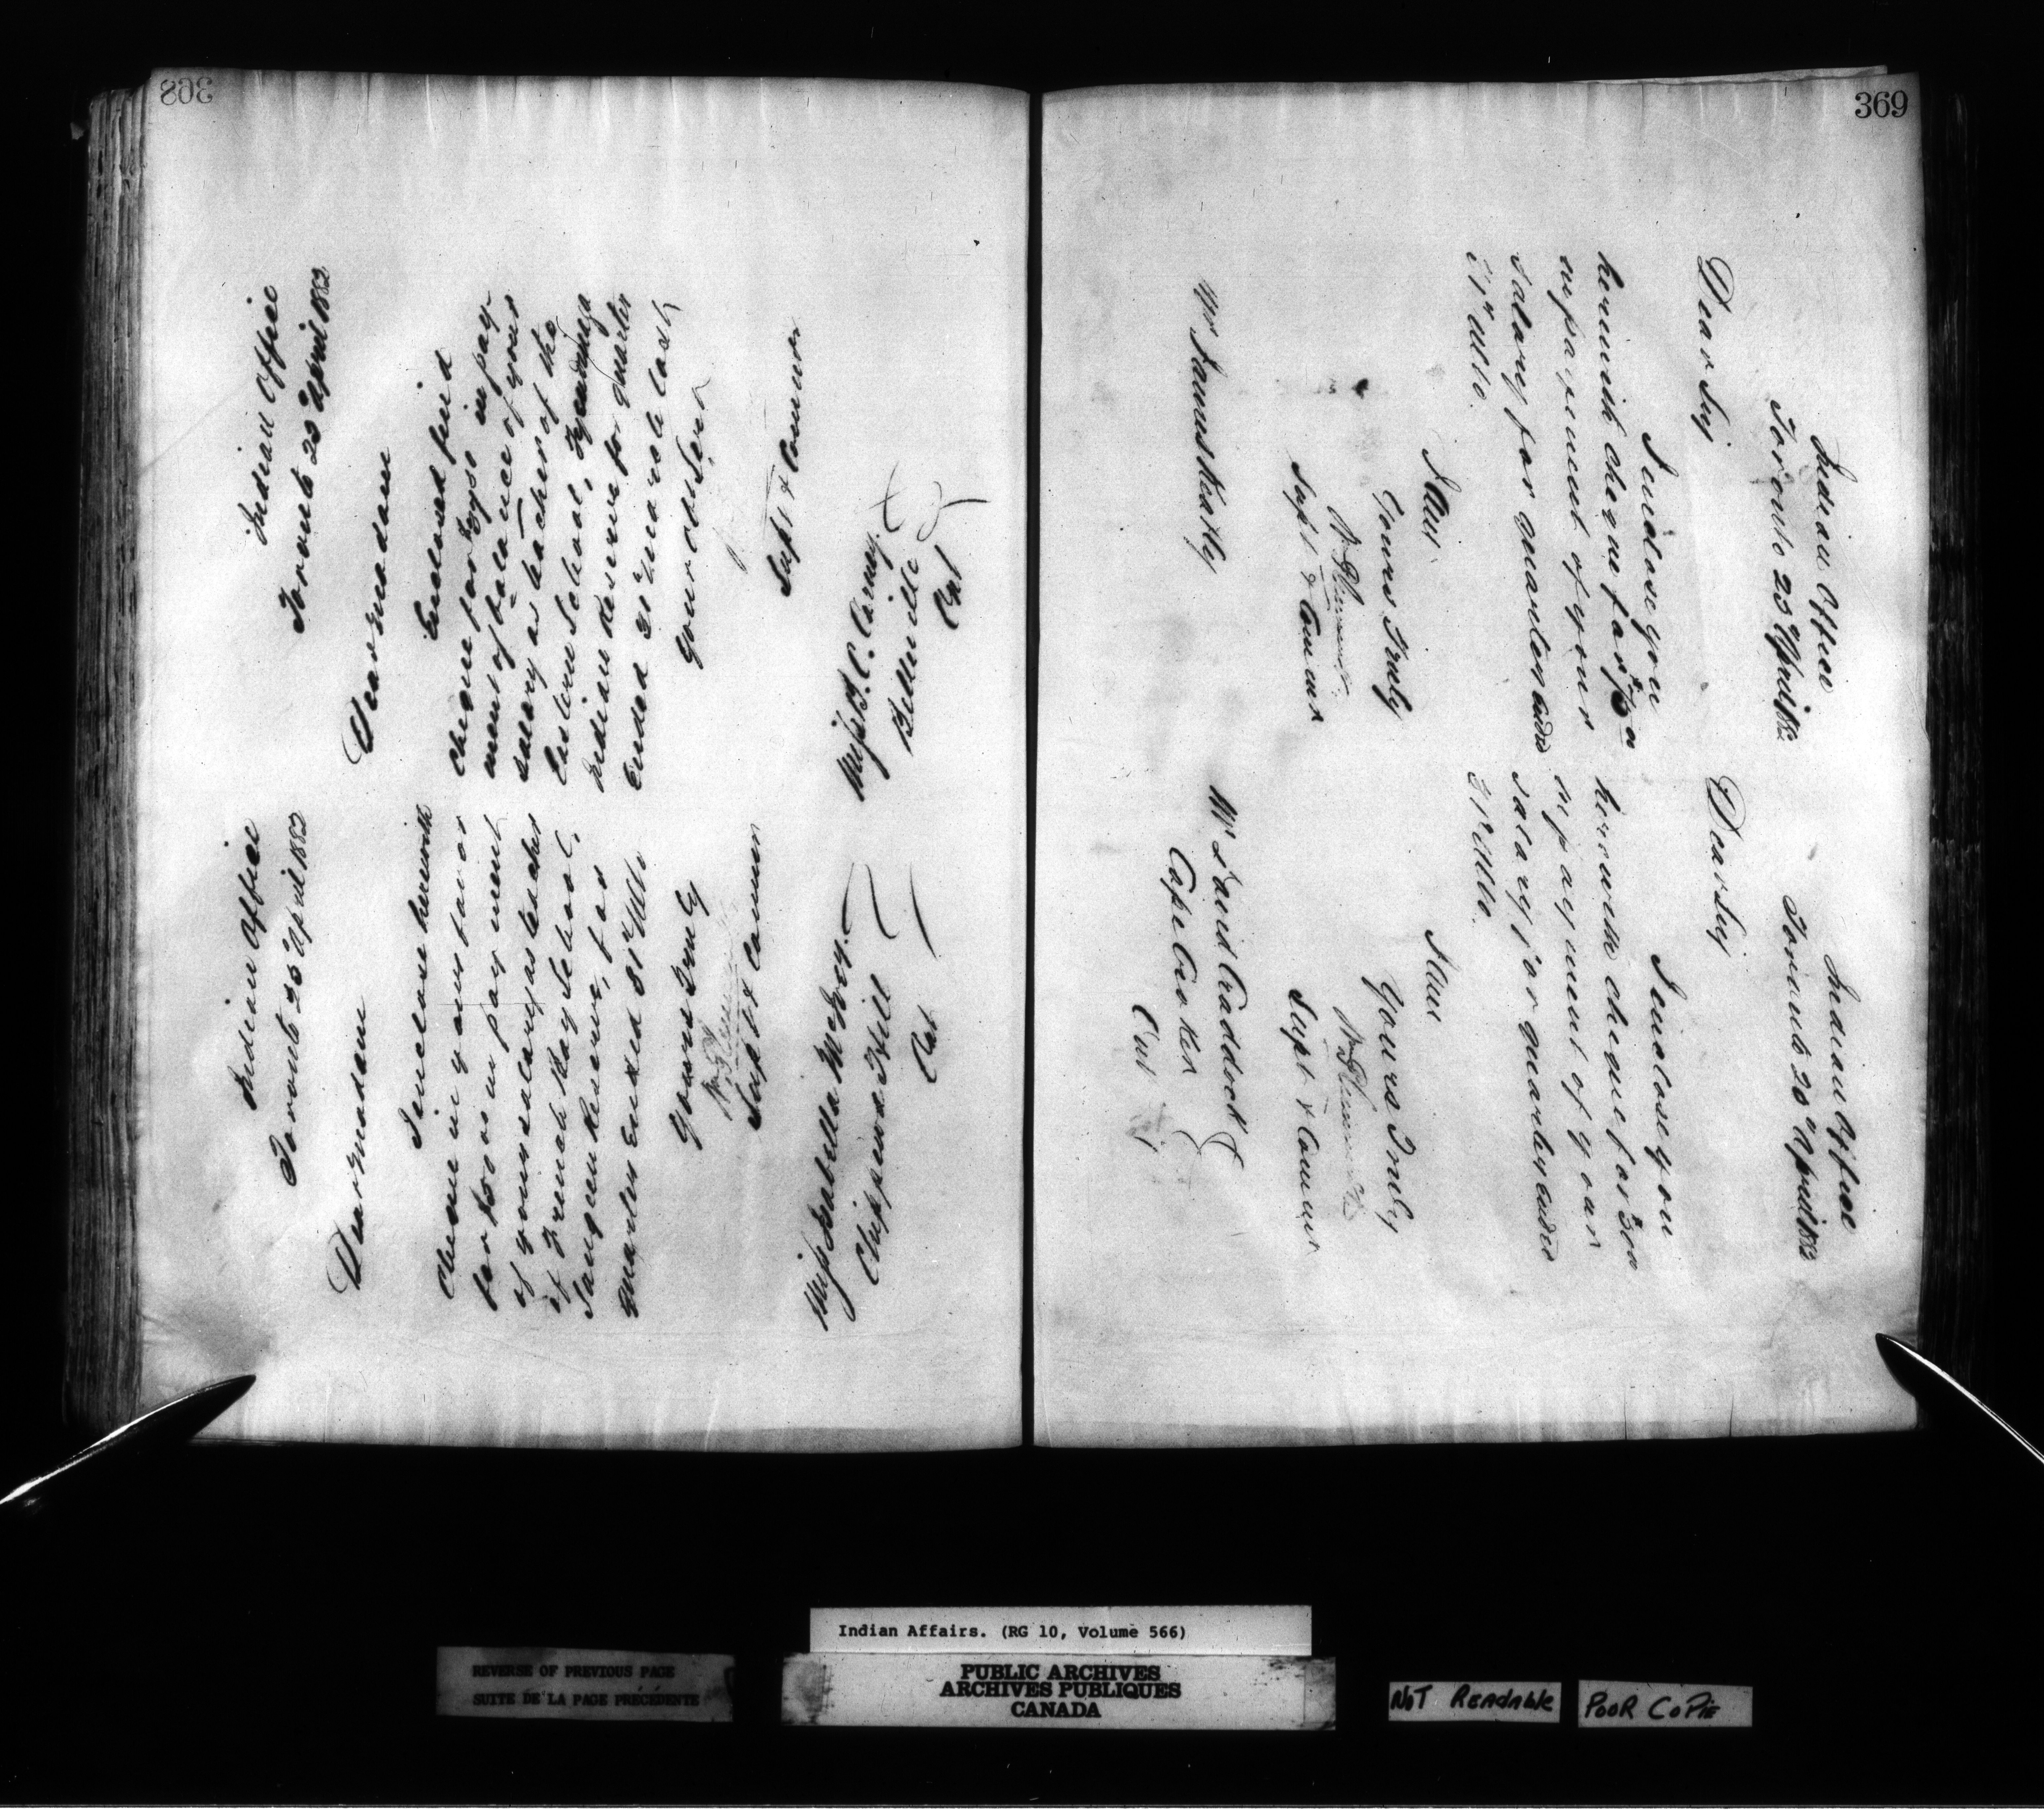 368
Indian Office
Toronto 25 April 1882
Dear Madam
I enclose herewith
Cheque in your favor
for $50 00 in payment
of your salary as teacher
of French Bay School,
Saugeen Reserve, for
quarter Ended 31st Ulto
Yours Truly
Supt & Commr
Miss Isabella McIver
Chippewa Hill
Ont
Indian Office
Toronto 25 April 1882
Dear Madam
Enclosed find
Cheque for in pay-
ment of balance of your
salary as teacher of the
Eastern School, Tyendinaga
Indian Reserve for quarter
Ended 31st March last
Your Obt Servt
Supt & Commr
Belleville
Ont
369
Indian Office
Toronto 25 April 1882
Dear Sir
I enclose you
herewith cheque for
in payment of your
salary for quarter ended
31st ulto.
I am
Yours Truly
Supt & Commr
Mr James Keatley
Indian Office
Toronto April 1882
Dear Sir
I enclose you
herewith cheque for
in payment of your
salary for quarter ended
31st Ulto.
I am
Yours Truly
Supt & Commr
Mr David Craddock
Cape Croker
Ont
Indian Affairs. (RG 10, Volume 566)
REVERSE OF PREVIOUS PAGE
SUITE DE LA PAGE PRÉCÉDENTE
PUBLIC ARCHIVES
ARCHIVES PUBLIQUES
CANADA
NOT READABLE
POOR COPIE